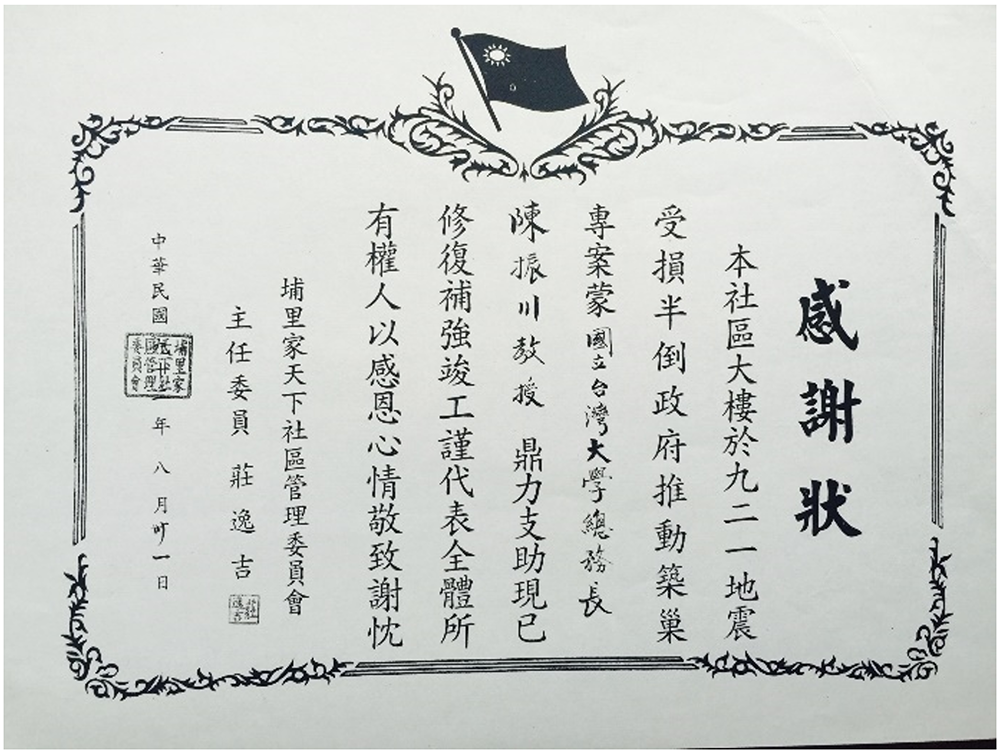 感謝狀
本社區大樓於九二一地震
受損半倒政府推動築巢
專案蒙國立台灣大學總務長
陳振川教授 鼎力支助現已
修復補強竣工謹代表全體所
有權人以感恩心情敬致謝忱
埔里家天下社區管理委員會
主任委員 莊逸吉
中華民國 年八月卅一日
埔里家
天下社
區管理
委員會